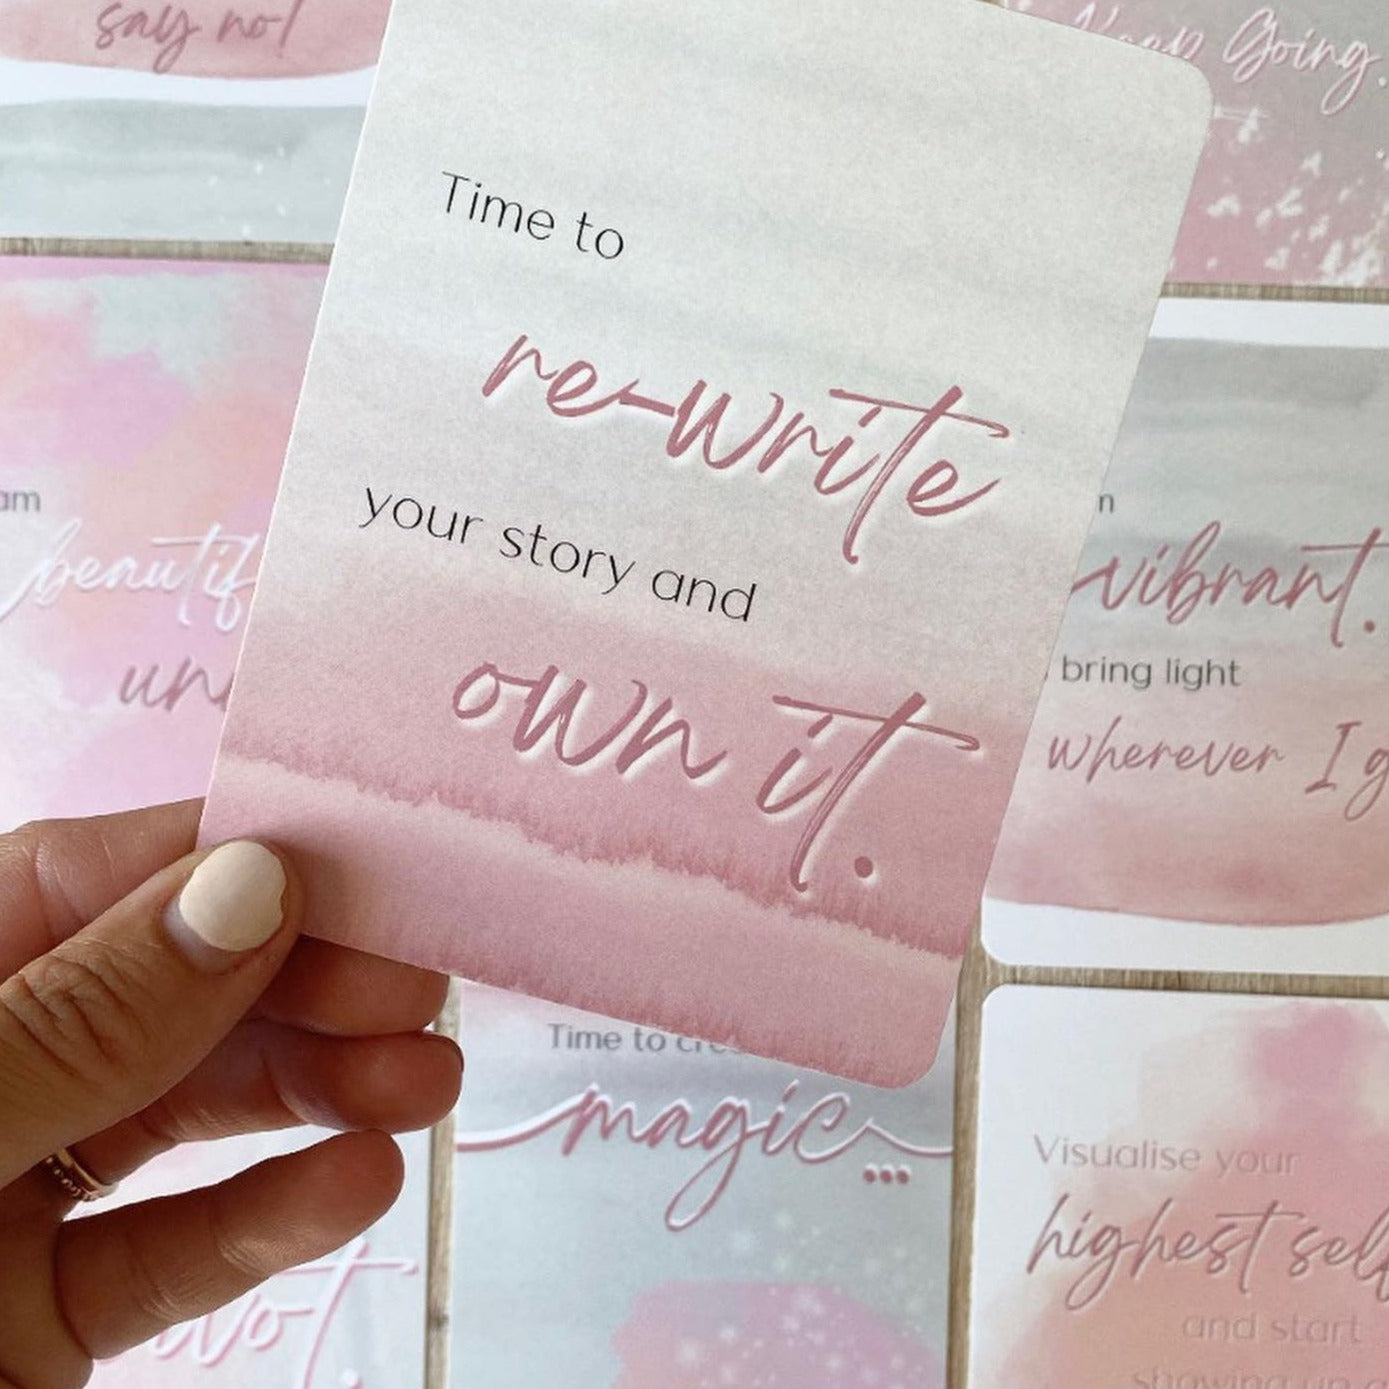 say no!
Keep Going.
Time to
re-write
your story and
own it.
am
beautif
un
vibrant.
bring light
wherever I g
Time to cre
magic...
Visualise your
highest self
and start
showing up